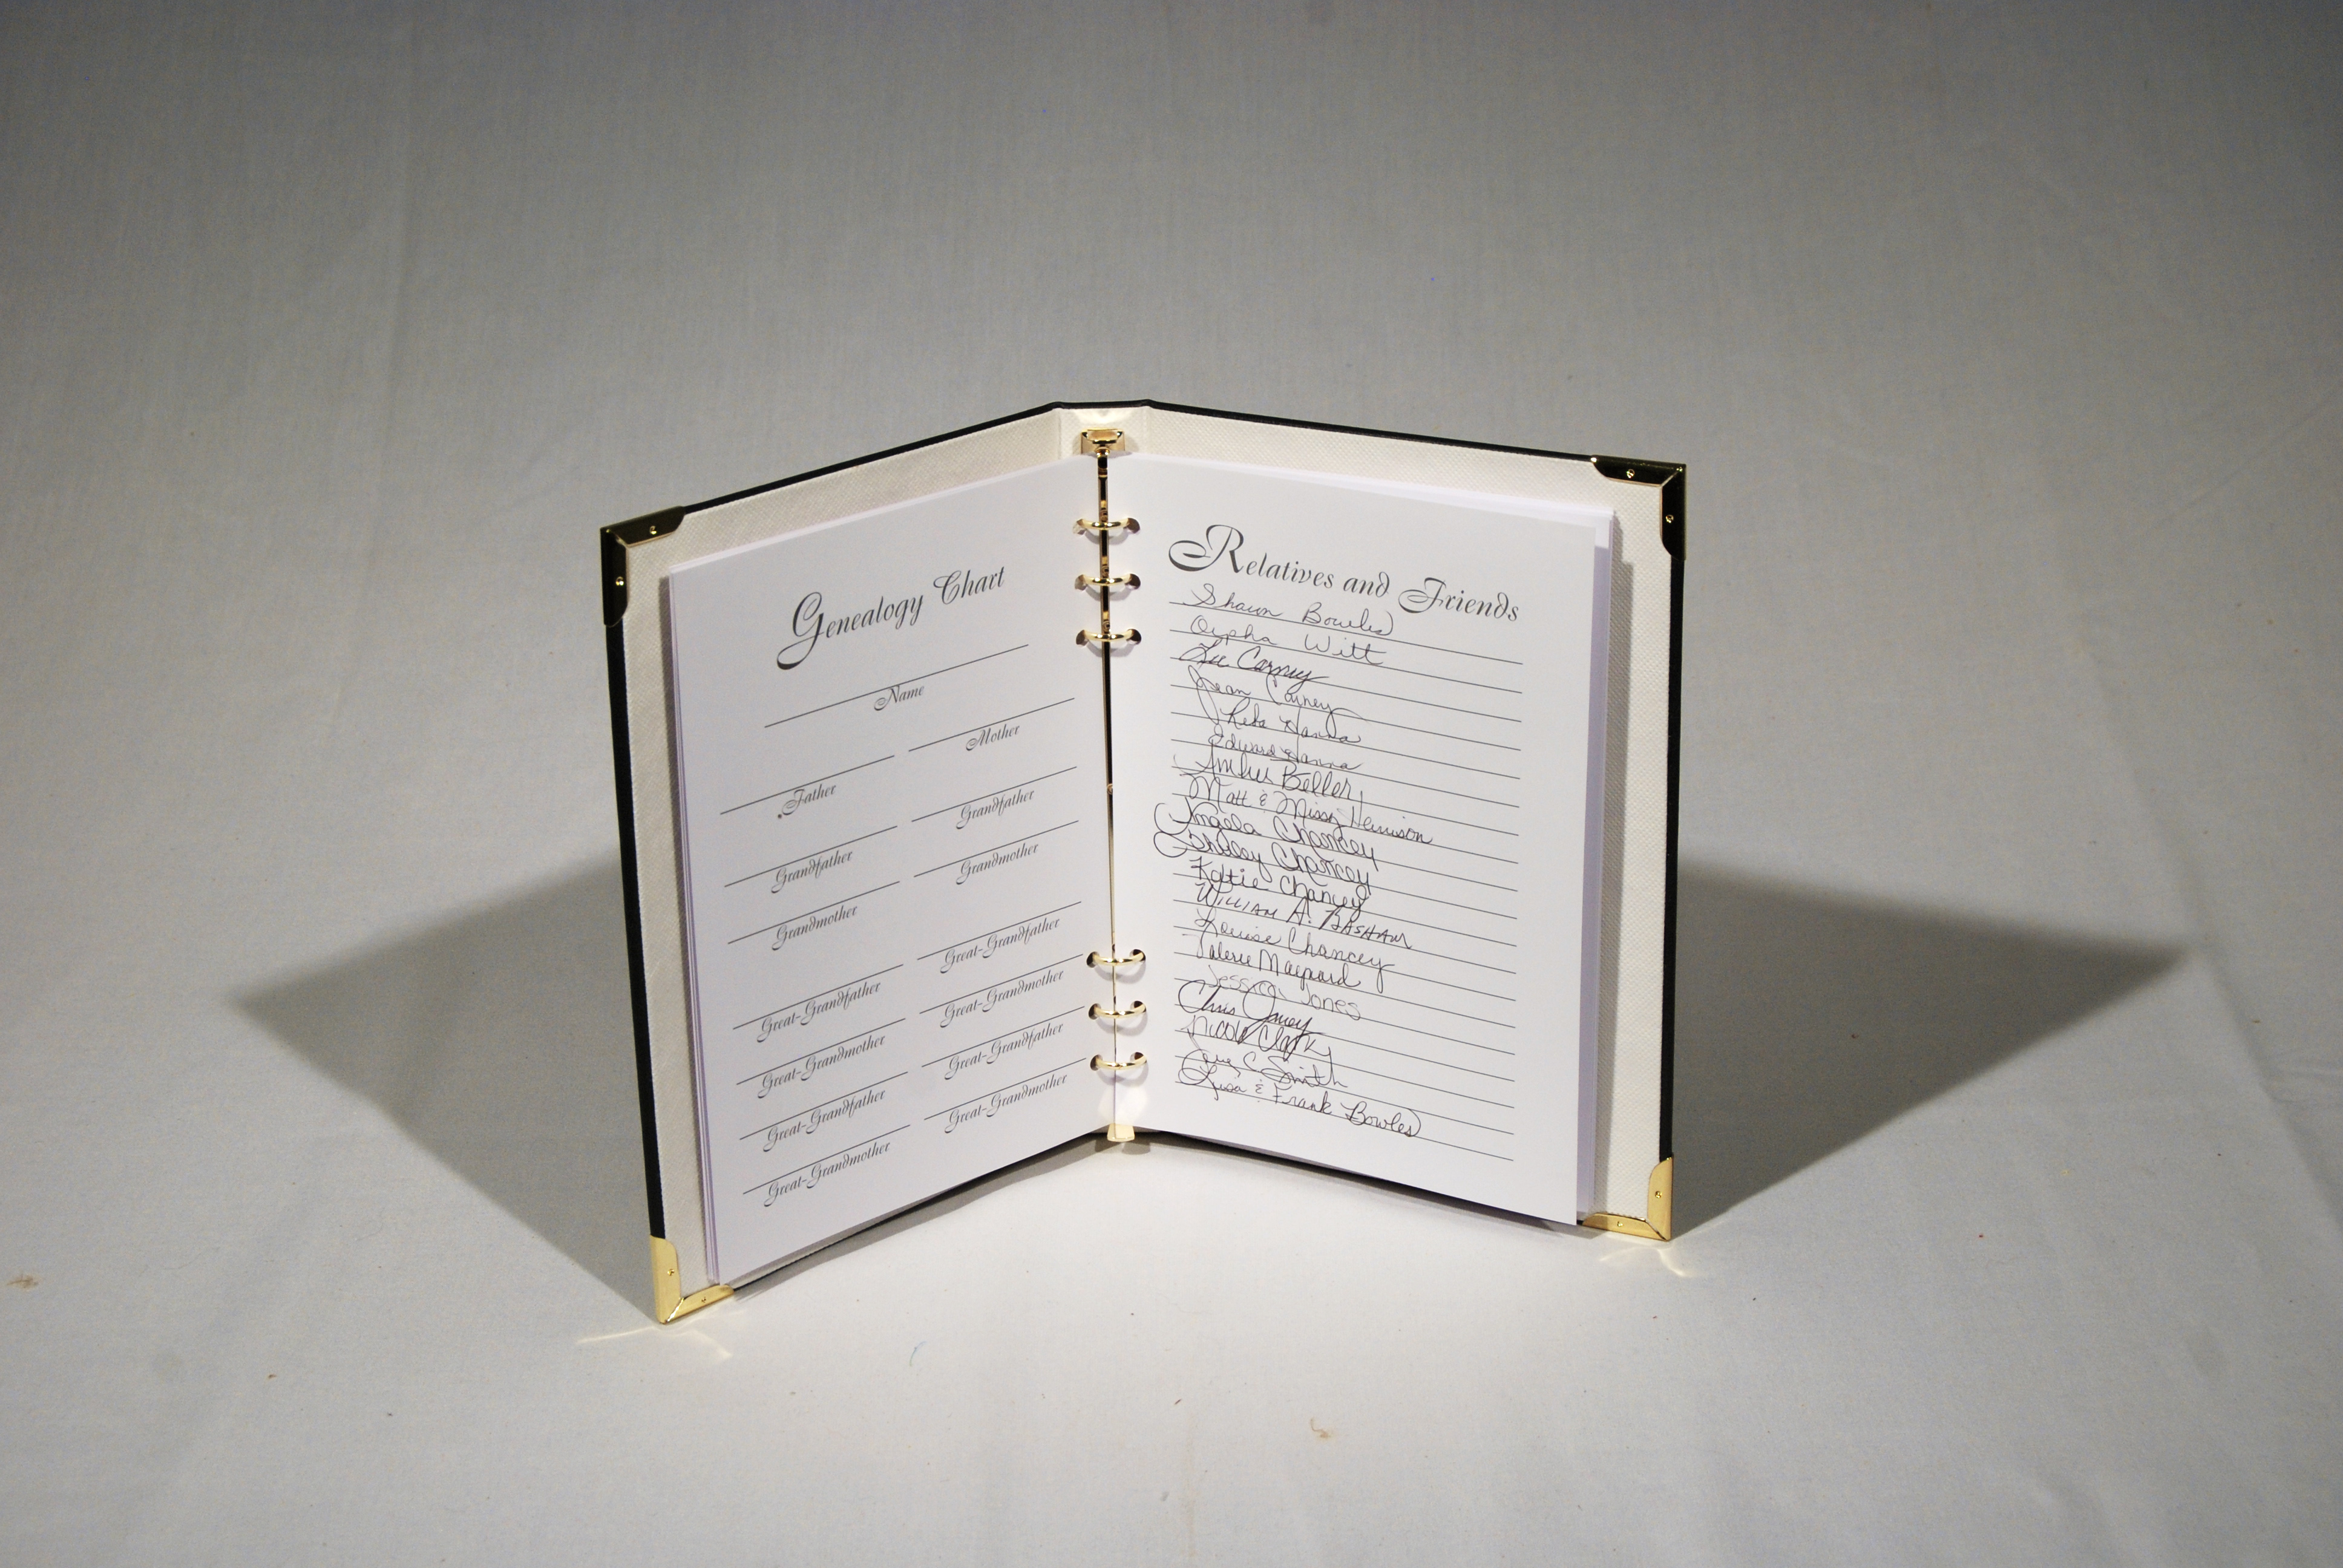 Genealogy Chart
Name
Mother
Father
Grandfather
Grandfather
Grandmother
Grandmother
Great-Grandfather
Great-Grandfather
Great-Grandmother
Great-Grandmother
Great-Grandfather
Great-Grandfather
Great-Grandmother
Great-Grandmother
Relatives and Friends
Shawn Bowles
Orpha Witt
Carney
Jean Carney
Reba Hanna
Edward Hanna
Amber Beller
Matt & Missy
Angela Chancey
Shelby Chancey
Katie Chancey
William A. Basham
Louise Chancey
Valerie Maynard
Jessica Jones
Chris
Nicole Clark
C Smith
Lisa & Frank Bowles